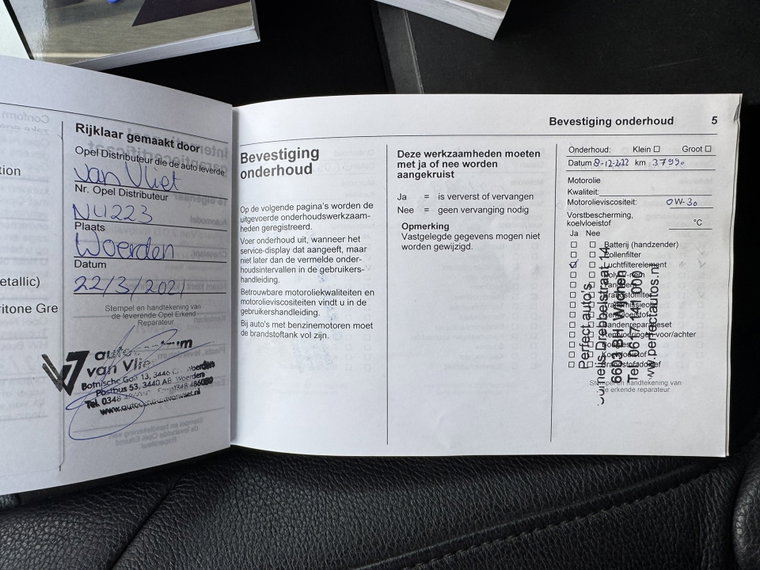 Rijklaar gemaakt door
Opel Distributeur die de auto leverde
van Vliet
Nr. Opel Distributeur
NL1223
Plaats
Woerden
Datum
22/3/2021
Stempel en handtekening van
de leverende Opel Erkend
Reparateur
van Vlie
Botnische Golf 13, 3446 Woerden
Postbus 53, 3440 AB Woerden
Tel. 0348
etallic)
ritone Gre
Bevestiging
onderhoud
Op de volgende pagina's worden de
uitgevoerde onderhoudswerkzaam-
heden geregistreerd.
Voer onderhoud uit, wanneer het
service-display dat aangeeft, maar
niet later dan de vermelde onder-
houdsintervallen in de gebruikers-
handleiding.
Betrouwbare motoroliekwaliteiten en
motorolieviscositeiten vindt u in de
gebruikershandleiding.
Bij auto's met benzinemotoren moet
de brandstoftank vol zijn.
Deze werkzaamheden moeten
met ja of nee worden
aangekruist
Ja = is ververst of vervangen
Nee = geen vervanging nodig
Opmerking
Vastgelegde gegevens mogen niet
worden gewijzigd.
Bevestiging onderhoud 5
Onderhoud: Klein Groot
Datum 8-12-222 km 37990
Motorolie
Kwaliteit:
Motorolieviscositeit: 0W-30
Vorstbescherming,
koelvloeistof °C
Ja Nee
Batterij (handzender)
ollenfilter
Luchtfilterelement
andenreparatieset
Stempel en handtekening van
de erkende reparateur
Perfect auto's
Cornelis Drebbelstraat 14
6603 BH Wichen
www.perfectautos.nl